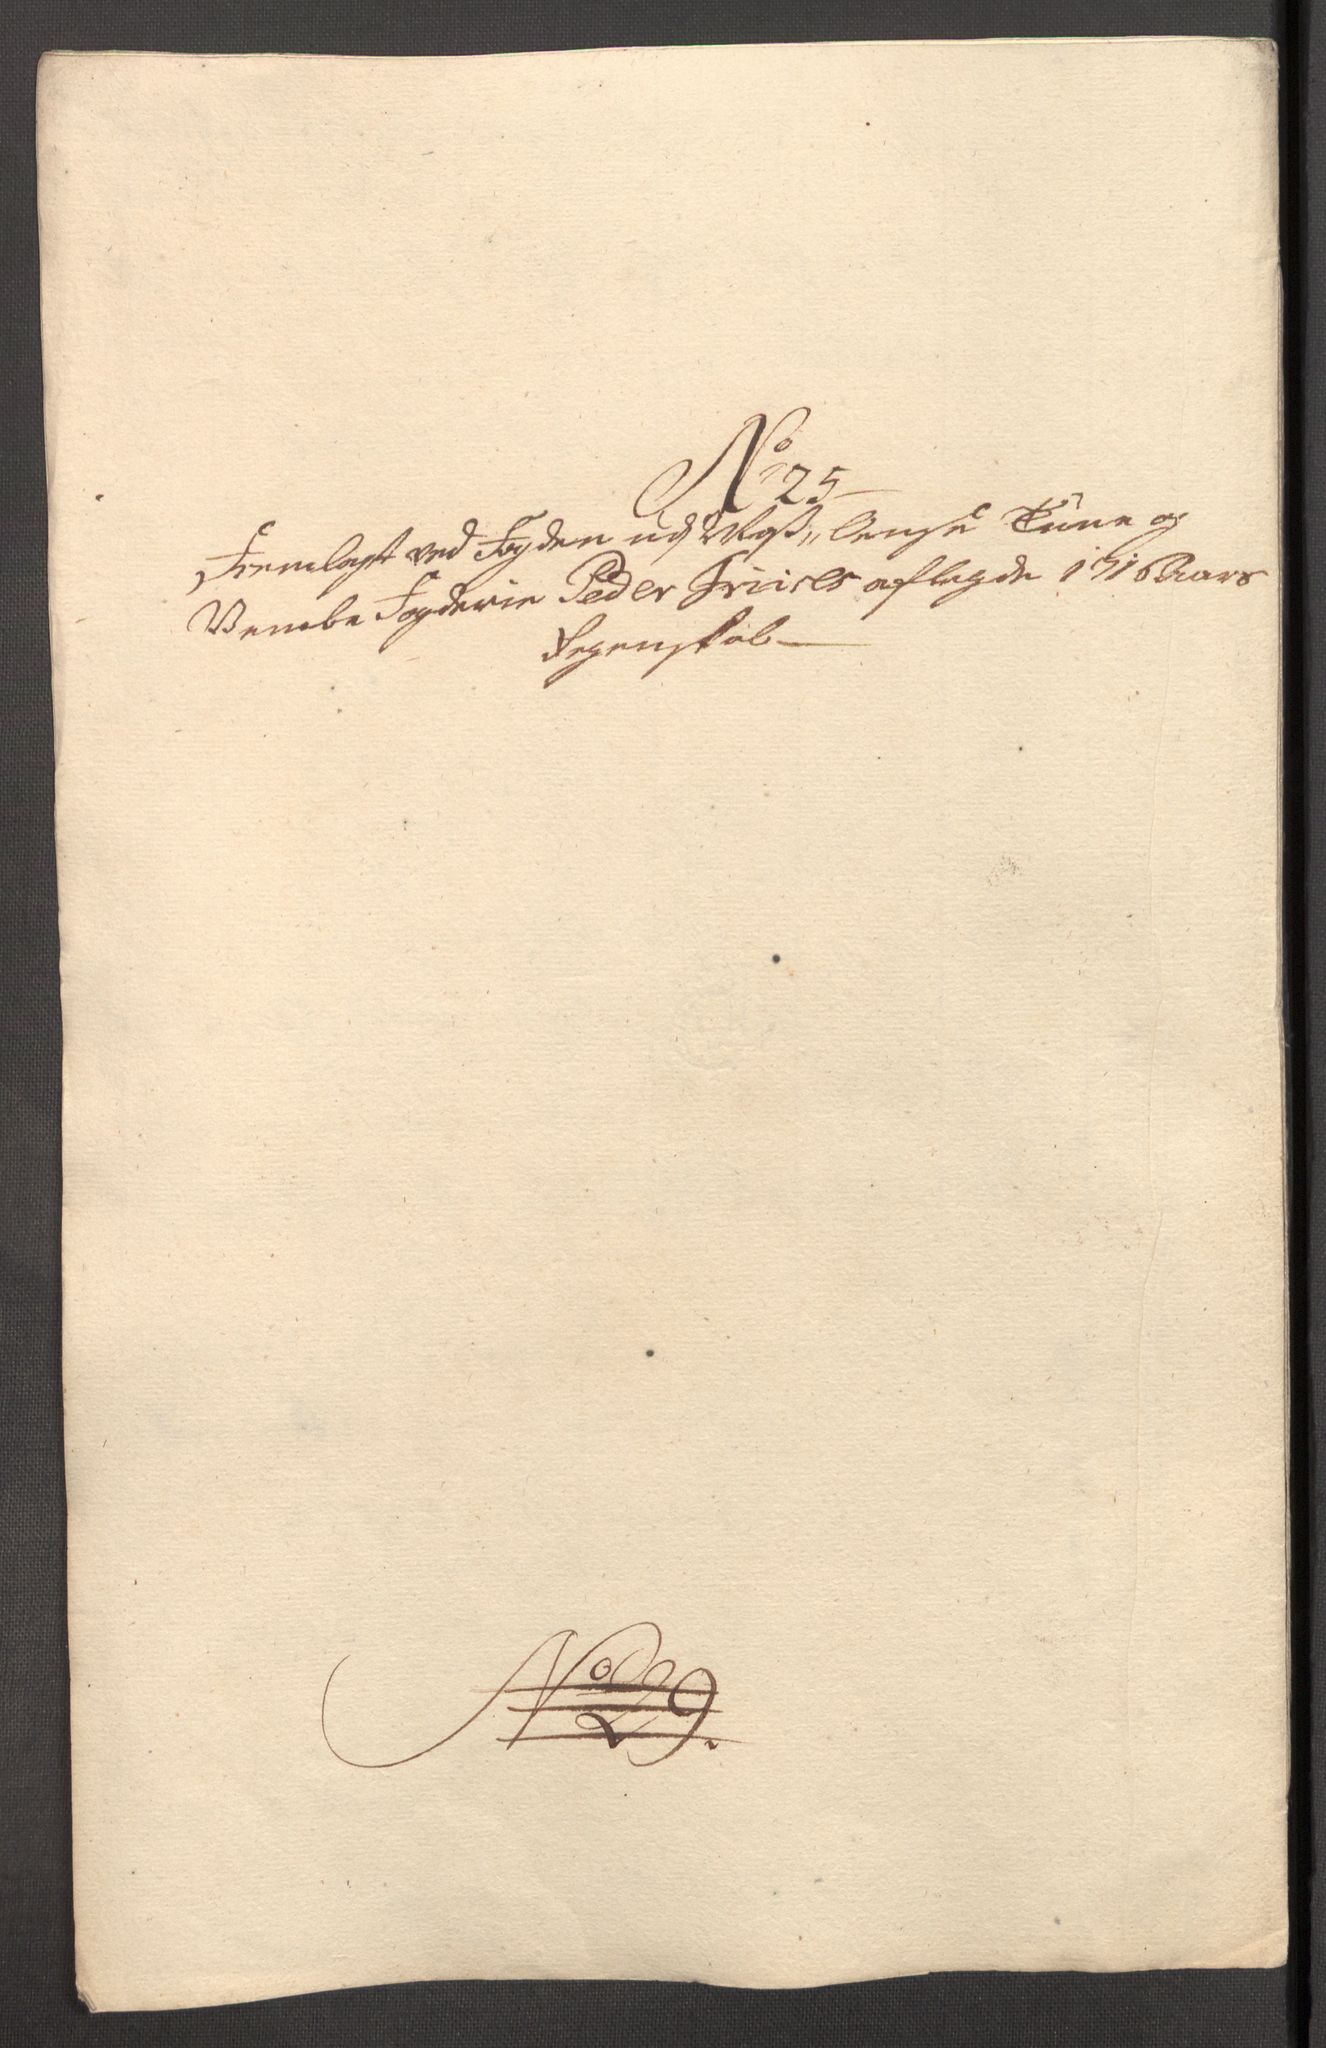 No 25
Fremlagt ved Fogden ud Moss, Onsø Tüne og
Vembe Fogderie Peder Friises aflegde 1716 Aars
Regenskab
No 29.